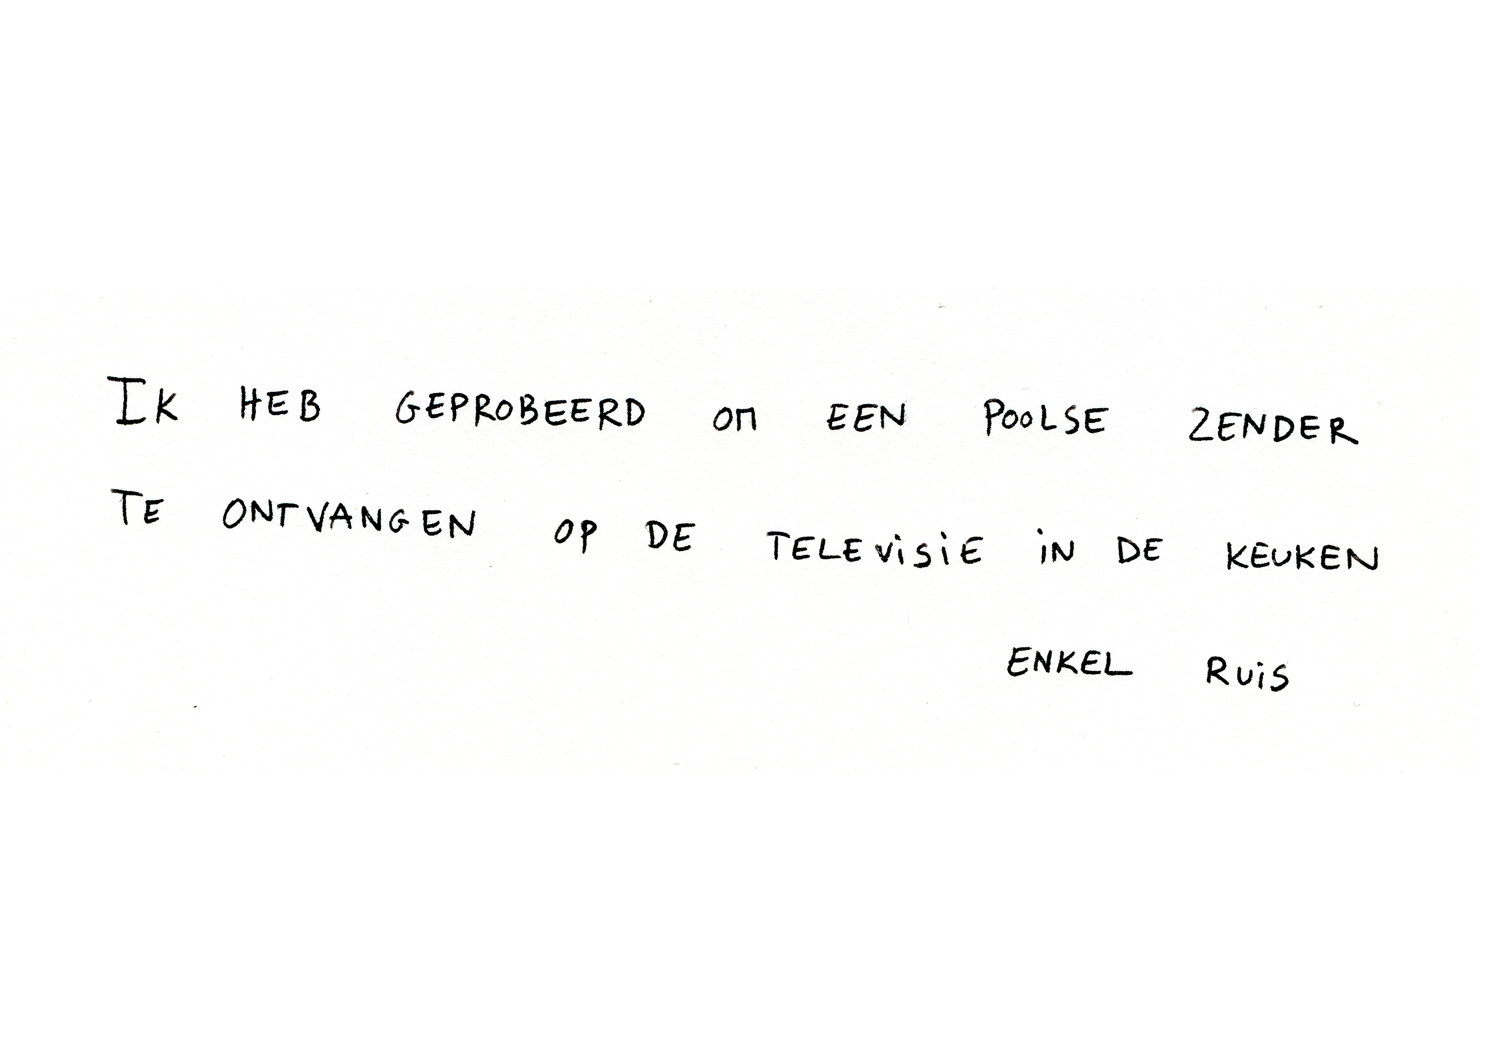 IK HEB GEPROBEERD OM EEN POOLSE ZENDER
TE ONTVANGEN OP DE TELEViSiE iN DE KEUKEN
ENKEL RUiS